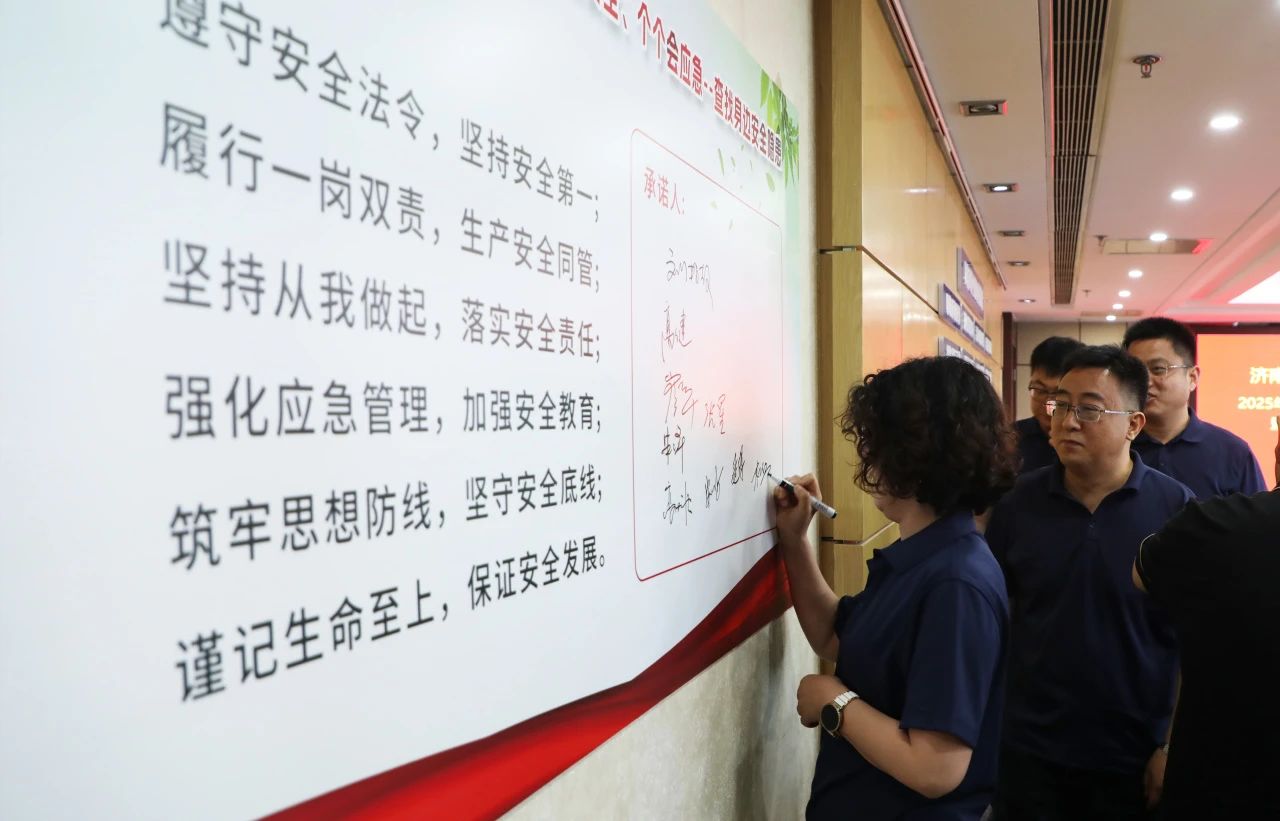 全、个个会应急--查找身边安全隐患
遵守安全法令，坚持安全第一；
履行一岗双责，生产安全同管；
坚持从我做起，落实安全责任；
强化应急管理，加强安全教育；
筑牢思想防线，坚守安全底线；
谨记生命至上，保证安全发展。
承诺人：
济南
2025年